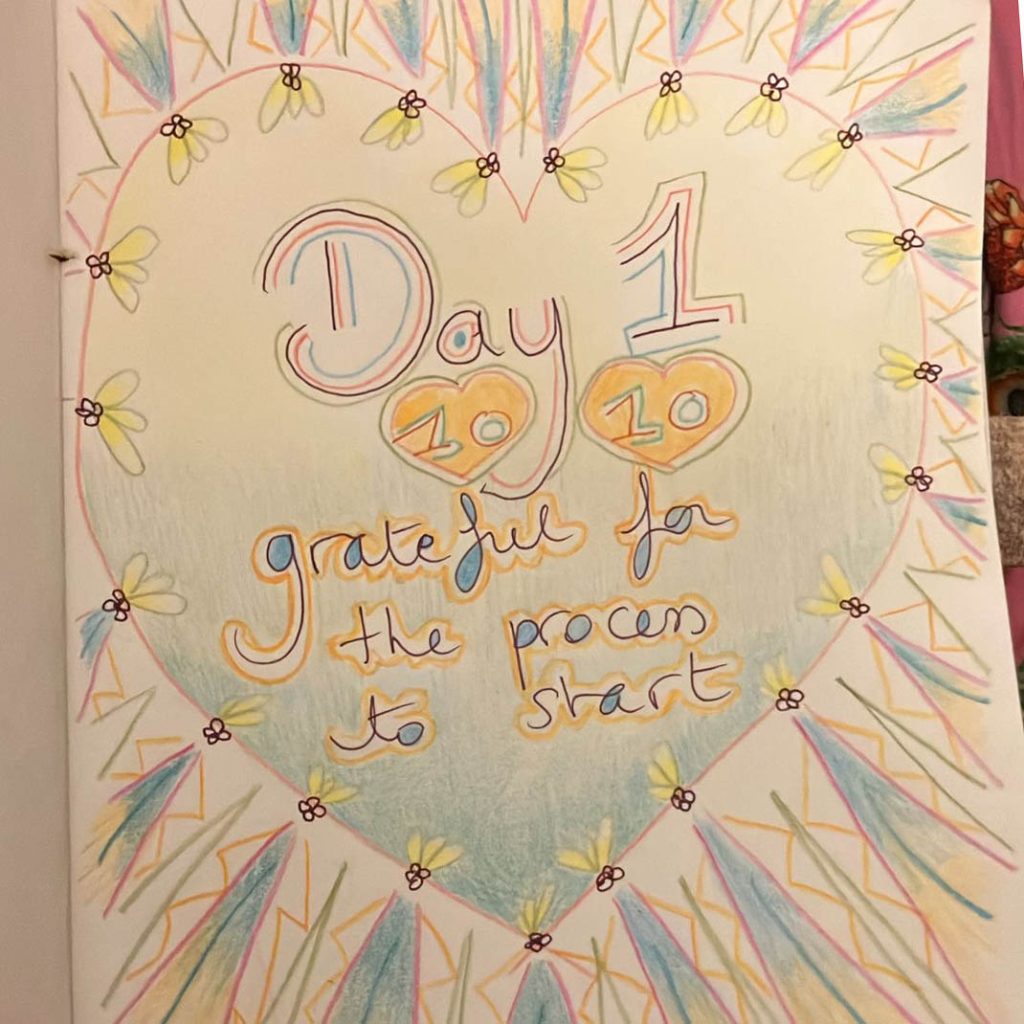 Day 1
10 10
grateful for
the process
to start